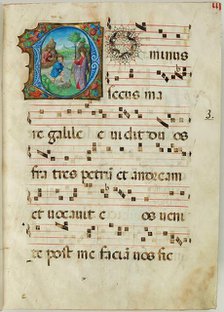 Dominus
secus ma
re galilee vidit duos
fratres petrum et andream
et vocavit eos veni
te post me faciam vos fieri
3.